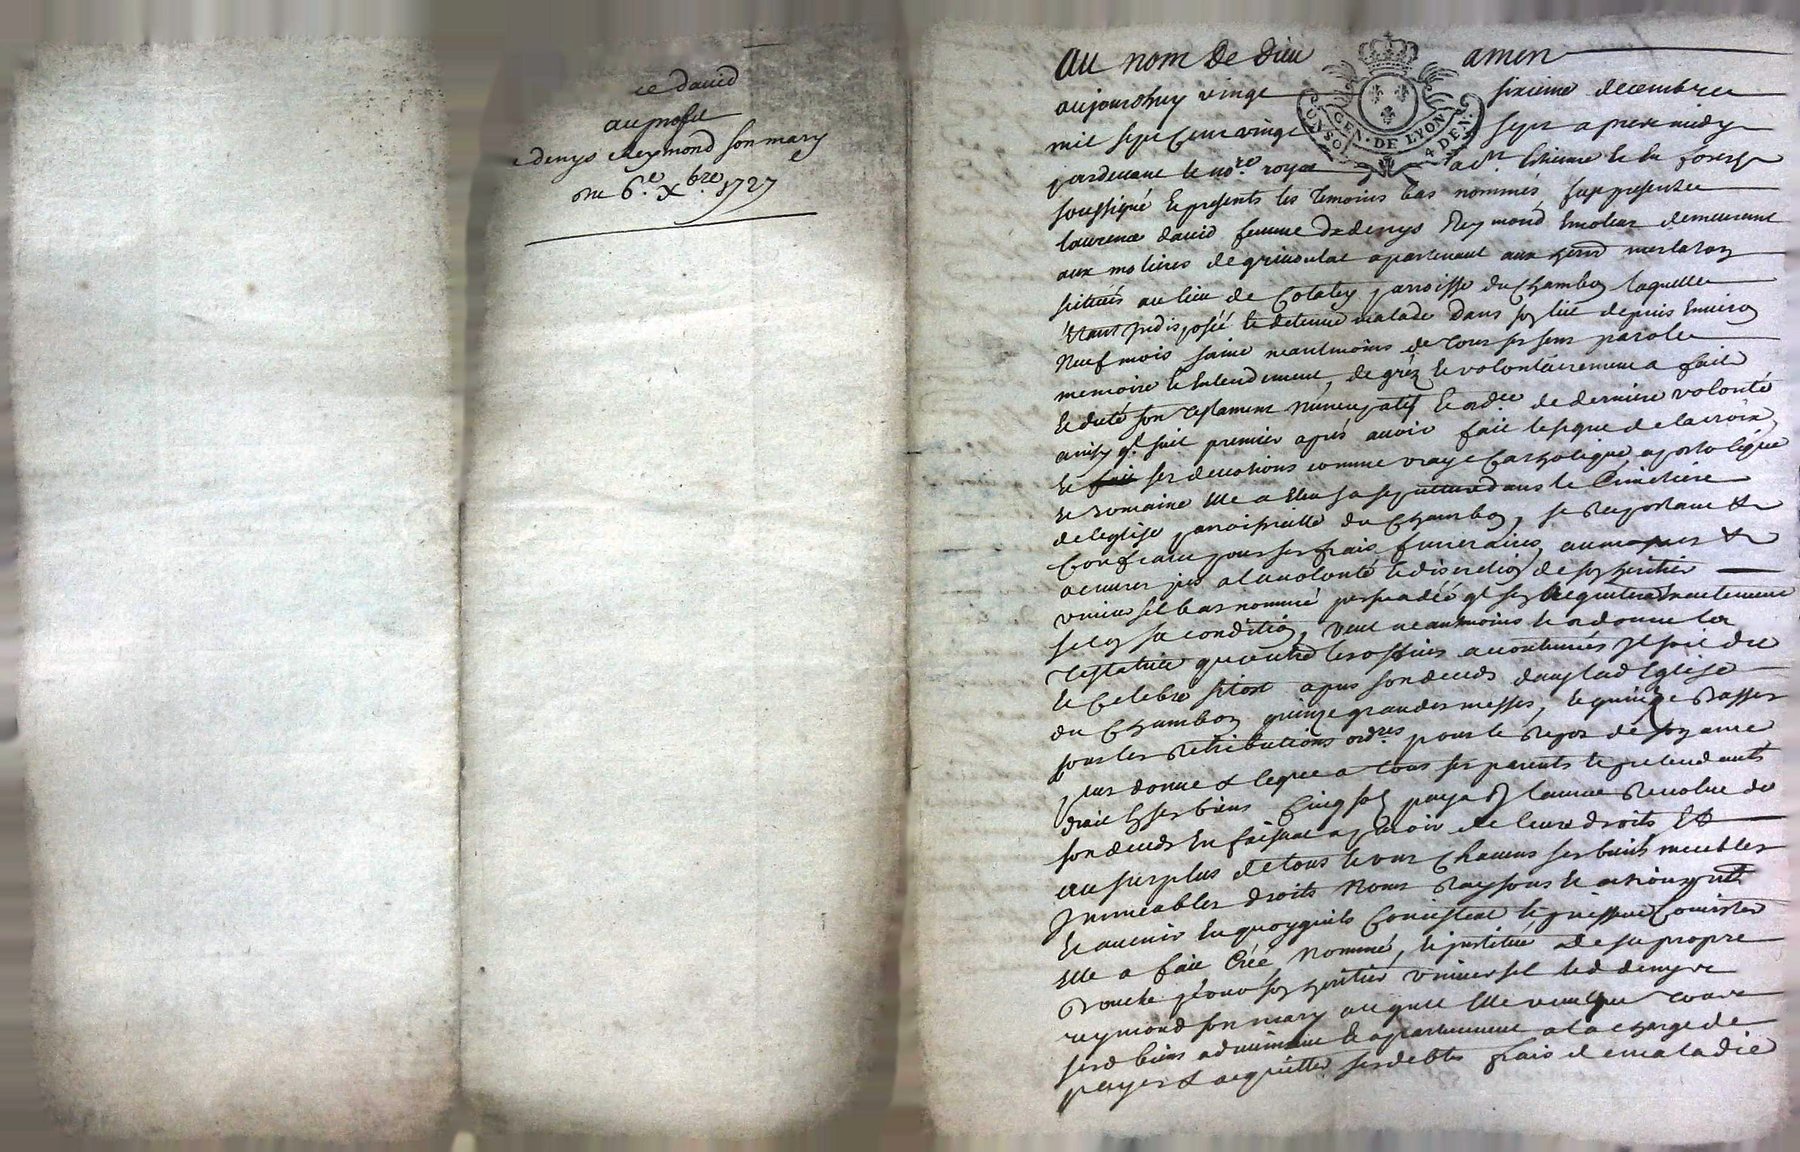 ce david
au profit
denys Reymond son mary
6.e Xbre 1727
Au nom de dieu amen
aujourdhuy vingt sixieme decembre
mil sept cent vingt sept apres midy
pardevant le no.re royal
GEN. DE LYON
UN SOL 4 DEN.
soussigné et presents les temoins bas nommés, fut presente
laurence david femme de denys Reymond demeurant
aux molieres de apartenant aux
scitués au lieu de Cotatey parroisse du Chambon laquelle
étant indisposée et detenue malade dans son lit depuis environ
neuf mois saine neantmoins de tous ses sens parole
memoire et entendement, de gréz et volontairement a fait
et dicté son testament nuncupatif et ord.re de derniere volonté
ainsy q.l suit premier aprés avoir fait le signe de la croix
et ses devotions comme vraye Catholique, apostolique
et romaine elle a eleu sa sepulture dans le Cimetiere
de leglise parroissialle du Chambon, se raportant &
Confiant pour ses frais funeraires, aumones &
œuvres pies a la volonté et discretion de son heritier
universel bas nommé persuadée q.l sen acquittera
selon sa condition, veut neantmoins et ordonne la
testatrice qu'outre les offices accoutumés Il soit dit
et Celebré sitost apres son decès dans lad Eglise
du Chambon quinze grandes messes, et quinze basses
sous les retributions ord.res pour le repos de son ame
plus donne & legue a tous ses parents et pretendants
droit en ses biens Cinq sols payables lannée revolue de
son decedz En faisant de leurs droits Et
au surplus de tous et uns Chacuns ses biens meubles
Immeubles droits noms raysons et actions
et avenir En quoyquils Consistent et puissent Consister
elle a fait Créé nommé, et institué de sa propre
bouche son heritier universel led denys
reymond son mary auquel elle veut que tous
sesd biens et apartiennent a la charge de
payer & acquitter ses debtes frais de maladie